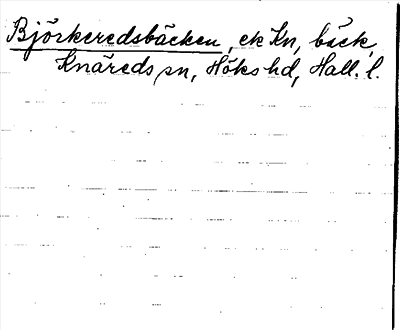 Björkeredsbäcken, ek Kn, bäck,
Knäreds sn, Höks hd, Hall. l.